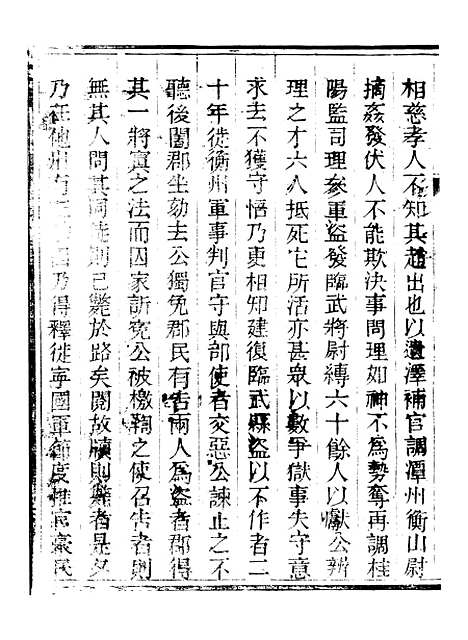 相慈孝人不知其趙出也以遺澤補官調潭州衡山尉
摘姦發伏人不能欺決事問理如神不爲勢奪再調桂
陽監司理參軍盜發臨武將尉縛六十餘人以獻公辨
理之才六人抵死它所活亦甚衆以數爭獄事失守意
求去不獲守悟乃更相知建復臨武縣盜以不作者二
十年徙衡州軍事判官守與部使者交惡公諫止之不
聽後闔郡坐劾去公獨免郡民有告兩人爲盜者郡得
其一將寘之法而囚家訴寃公被檄鞫之使召告者則
無其人問其同徒則已斃於路矣閱故牘則斃者是夕
乃在他州有囚乃得釋徙寧國軍節度推官豪民